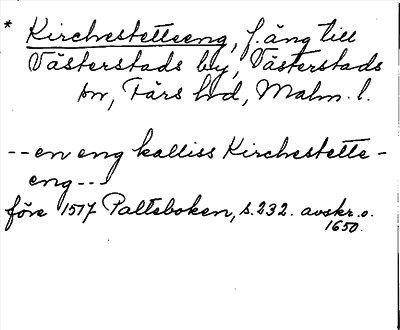 * Kirchestetteeng, f. äng till
Västerstads by, Västerstads
sn, Färs hd, Malm. l.
-- en eng kalliss Kirchestette-
eng ---
före 1517 Palteboken, s. 232. avskr. o.
1650.